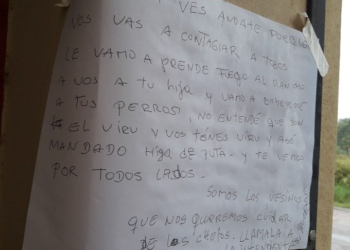 VES ANDATE PORQUE
VOS VAS A CONTAGIAR A TODOS
LE VAMO A PRENDE FUEGO AL
A VOS A TU HIJA Y VAMO A
A TUS PERROS, NO ENTENDÉ QUE SON
EL VIRU Y VOS TÉNES VIRU Y
MANDADO HIJA DE PUTA - Y TE VEMOS
POR TODOS LADOS.
SOMOS LOS VESINOS
QUE NOS QUEREMOS CUIDAR
DE LOS CHETOS. LLAMALA A
LA INTENDENTA